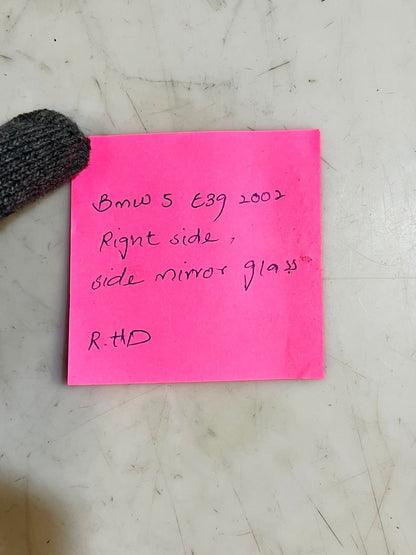 Bmw 5 E39 2002
Right side,
side mirror glass
R.HD